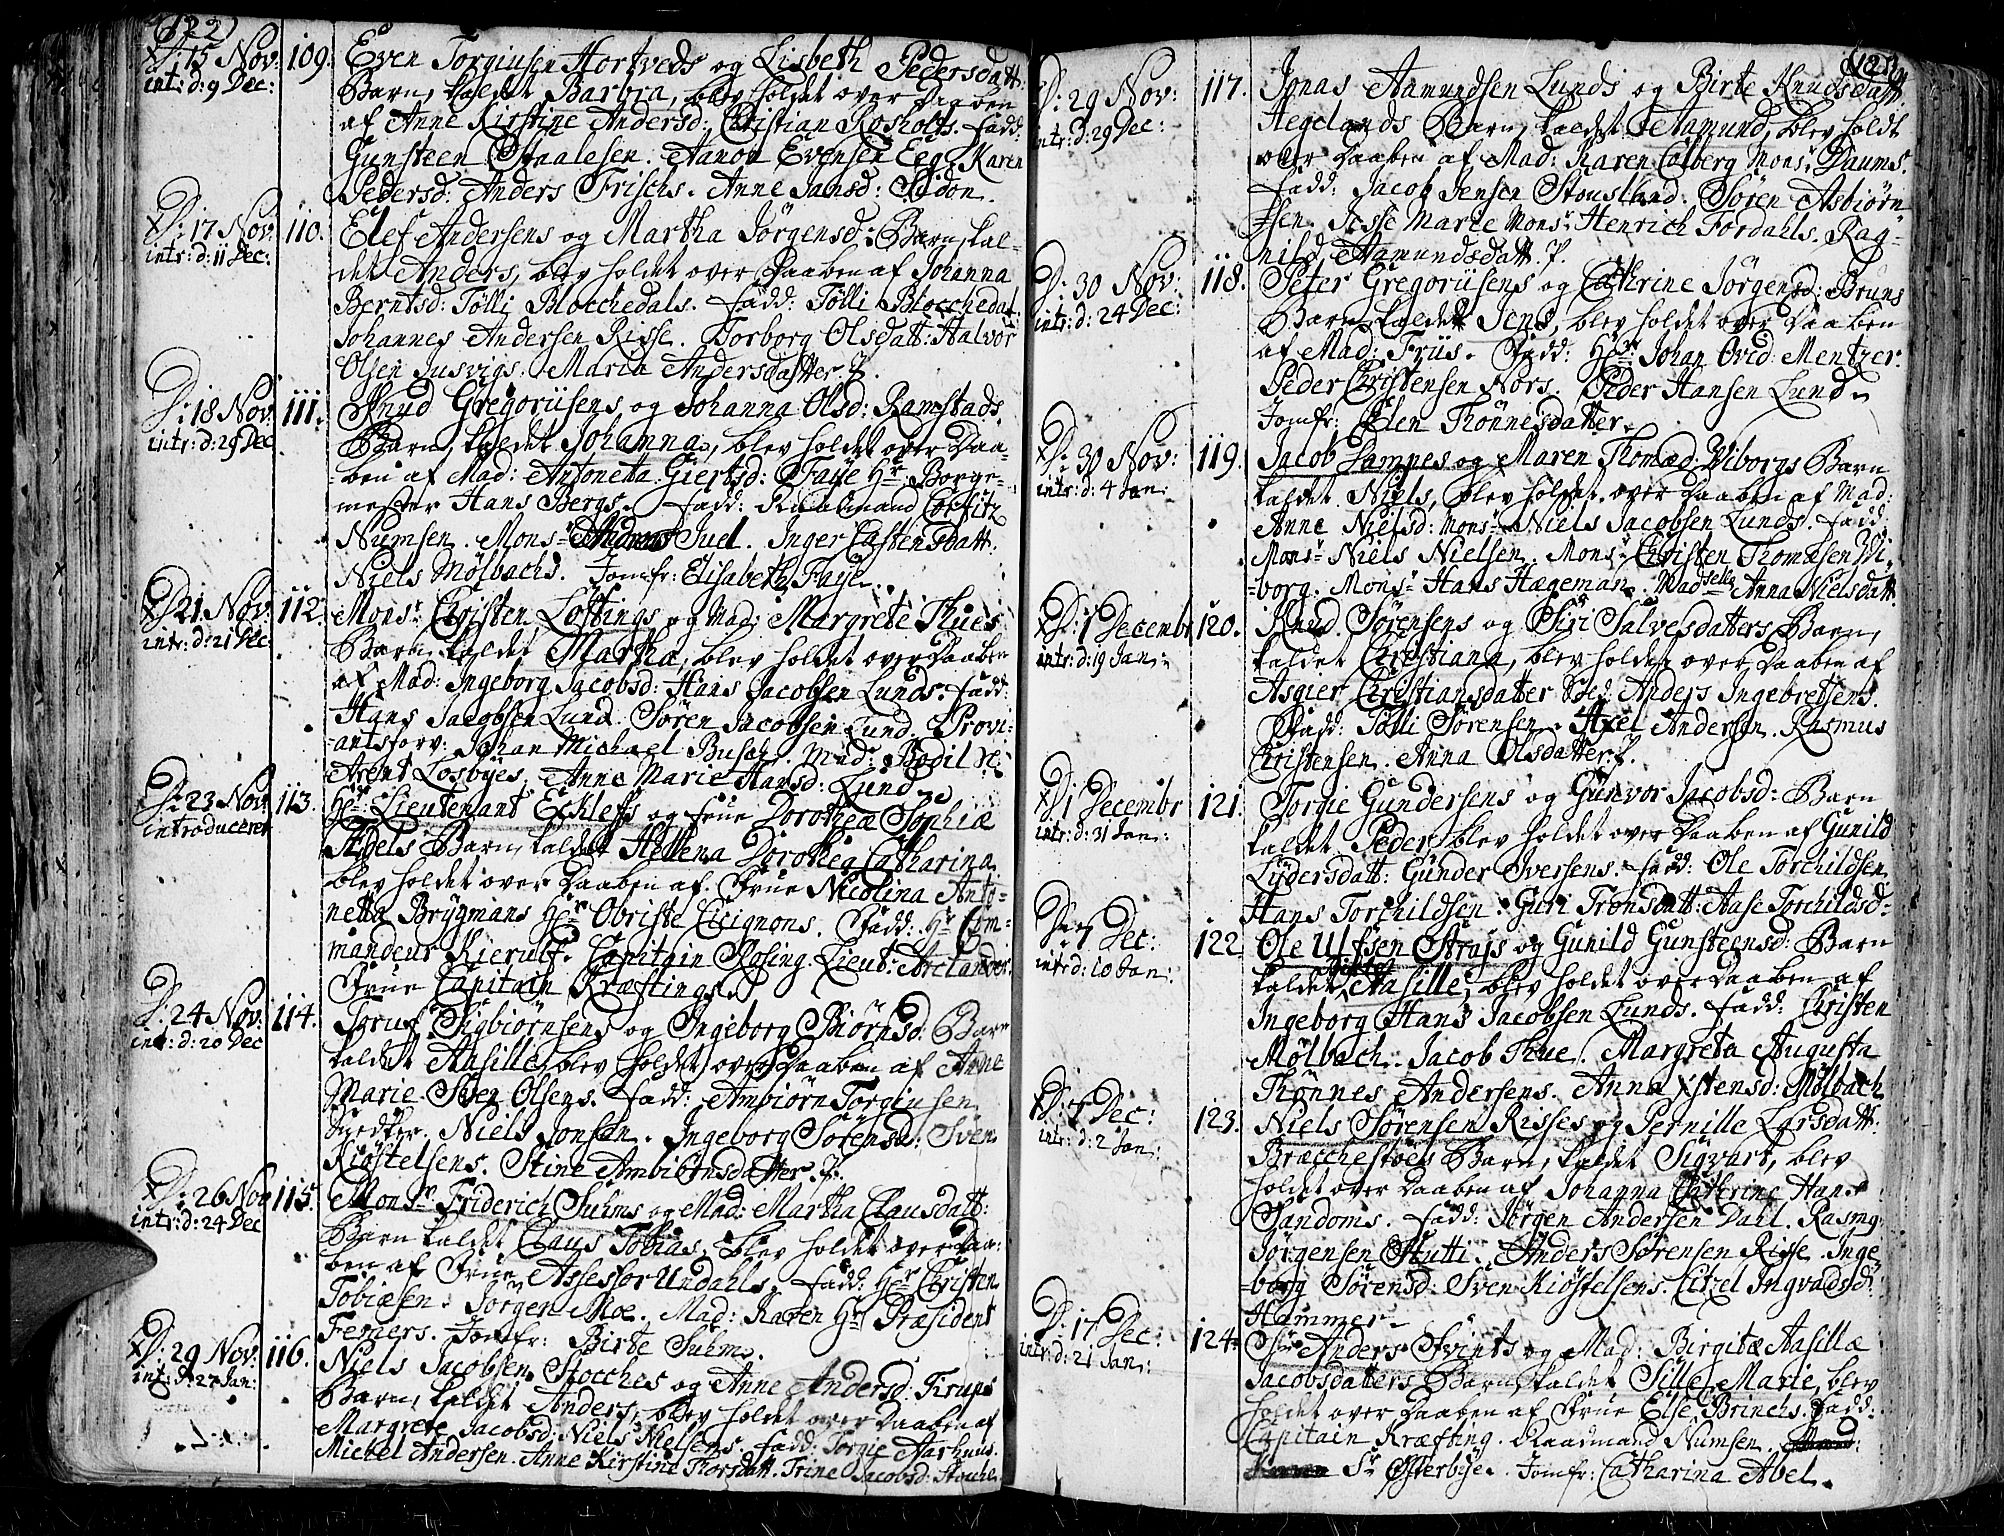 (122)
D: 15 Nov:
intr: d: 9 Dec:
109.
Even Torgiusen Hortveds og Lisbeth Pedersdatt:
Barn, kaldet Barbra, blev holdet over Daaben
af Anne Kirstine Andersd: Christian Rosholts. Fadd:
Gunsteen Staalesen. Aanon Evensen Eeg. Karen
Pedersd: Anders Frischs. Anne Jansd: Sidon.
D: 17 Nov
intr: d: 11 Dec:
110.
Elef Andersens og Martha Jörgensd: Barn, kal-
det Anders, blev holdet over Daaben af Johanna
Berntsd: Tölli Blocchedals. Fadd: Tölli Blocchedal.
Johannes Andersen Risse. Torborg Olsdatt: Halvor
Olsen Jusvigs. Maria Andersdatter.
D: 18 Nov
intr: d: 29 Dec
111.
Knud Gregoriisens og Johanna Olsd: Ramstads
Barn, kaldet Johanna, blev holdet over Daa-
-ben af Mad: Antonetta Giertsd: Faye Hr: Borge-
mester Hans Bergs. Fadd: Raadmand Coefitz
Numsen. Mons: Juel. Inger Castensdatt:
Niels Mölbachs. Jomfr: Elisabeth Faye.
D: 21 Nov:
intr: d: 21 Dec:
112.
Monsr: Christen Löftings og Mad: Margrete Thues
Barn, kaldet Martha, blev holdet over Daaben
af Mad: Ingeborg Jacobsd: Hans Jacobsen Lunds. Fadd:
Hans Jacobsen Lund. Sören Jacobsen Lund. Provi-
-antsforv: Johan Michael Busch. Mad: Bodil
Arent Losbyes. Anne Marie Hansd: Lund
D: 23 Nov
introduceret
113.
Hr: Lieutenant Eckleffs og Frue Dorotheæ Sophiæ
Abels Barn, kaldet Hellena Dorothea Catharina
blev holdet over Daaben af Frue Nicolina Anto-
netta Brÿgmans Hr: Obriste Cicignons. Fadd: Hr: Com-
mandeur Kierulf. Capitain Rosing. Lieut: Arelander.
Frue Capitain Kræftings.
D: 24 Nov:
intr: d: 20 Dec
114.
Sigbiörnsens og Ingeborg Biörnsd: Barn
kaldet Aasille, blev holdet over Daaben af Anne
Marie Sven Olsens. Fadd: Ambiörn Torgiusen
Niels Jonsen. Ingeborg Sörensd: Sven
Kiöstelsens. Stine Ambiörnsdatter.
D: 26 Nov
intr: d: 24 Dec
115.
Monsr: Friderich Suhms og Mad: Martha Clausdatt:
Barn kaldet Claus Tobias, blev holdet over Daa-
ben af Frue Assessor Undahls. Fadd: Hr: Christen
Tobiæsen. Jörgen Moe. Mad: Karen Hr: Præsident
Fergers. Jomfr: Birte Suhm.
D: 29 Nov:
int: d: 27 Jan:
116.
Niels Jacobsen Stocches og Anne Andersd: Tirups
Barn, kaldet Anders, blev holdet over Daaben af
Margrete Jacobsd: Niels Nielsens. Fadd: Torgie Aarhuus.
Mickel Andersen. Anne Kirstine Thorsdatt. Trine Jacobsd: Stoche.
(123)
D: 29 Nov:
intr: d: 29 Dec:
117.
Jonas Aamundsen Lunds og Birte Knudsdatt:
Hegelands Barn, kaldet Aamund, blev holdt
over Daaben af Mad: Karen Colberg Monsr: Daums.
Fadd: Jacob Jensen Stousland. Sören Asbiörn-
-sen. Sisse Marie Monsr: Henrich Fordahls. Rag-
nild Aamundsdatt.
D: 30 Nov:
intr: d: 24 Dec:
118.
Peter Gregoriisens og Cathrine Jörgensd: Bruns
Barn, kaldet Jens, blev holdet over Daaben
af Mad: Friis. Fadd: Hr: Johan Ovid: Mentzer.
Peder Christensen Nors. Peder Hansen Lund.
Jomfr: Elen Thönnesdatter.
D: 30 Nov:
intr: d: 4 Jan:
119.
Jacob Lampes og Maren Thomæd: Viborgs Barn
kaldet Niels, blev holdet over Daaben af Mad:
Anne Nielsd: Monsr: Niels Jacobsen Lunds. Fadd:
Monsr: Niels Nielsen. Monsr: Christen Thomæsen Vi-
-borg. Monsr: Hans Hageman. Madselle Anna Nielsdatt.
D: 1 Decembr
intr: d: 19 Jan:
120.
Knud Sörensens og Siri Salvesdatters Barn,
kaldet Christiana, blev holdet over Daaben af
Asgier Christiansdatter Anders Ingebretsens.
Fadd: Tölli Sörensen. Axel Andersen. Rasmus
Christensen. Anna Olsdatter.
D: 1 Decembr
intr: d: 31 Jan:
121.
Torgie Gundersens og Gunvor Jacobsd: Barn
kaldet Peder, blev holdet over Daaben af Gunild
Lydersdatt: Gunder Iversens. Fadd: Ole Torchildsen
Hans Torchildsen. Guri Tronsdatt: Aase Torchildsd:
D: 7 Dec:
intr: d: 10 Jan:
122.
Ole Ulfsen Strajs og Gunild Gunsteensd: Barn
kaldet Aasille, blev holdet over Daaben af
Ingeborg Hans Jacobsen Lunds. Fadd: Christen
Mölbach. Jacob Thue. Margreta Augusta
Thönnes Andersens. Anna Xstensd: Mölbach
D: 7 Dec:
intr: d: 2 Jan:
123.
Niels Sörensen Risses og Pernille Larsdatt:
Bræcchestöes Barn, kaldet Sigvart, blev
holdet over Daaben af Johanna Catrine Hans
Sandoms. Fadd: Jörgen Andersen Dahl. Rasmg:
Jörgensen Stutti. Anders Sörensen Risse. Inge-
-borg Sörensd: Sven Kiöstelsens. Citzel Ingvadsd:
Hammer.
D: 17 Dec:
intr: d: 21 Jan:
124.
Sr: Anders Svints og Mad: Birgitæ Aasillæ
Jacobsdatters Barn, kaldet Sille Marie, blev
holdet over Daaben af Frue Else Brinchs. Fadd:
Capitain Kræfting. Raadmand Numsen.
Sr: Osterbye. Jomfr: Catharina Abel.